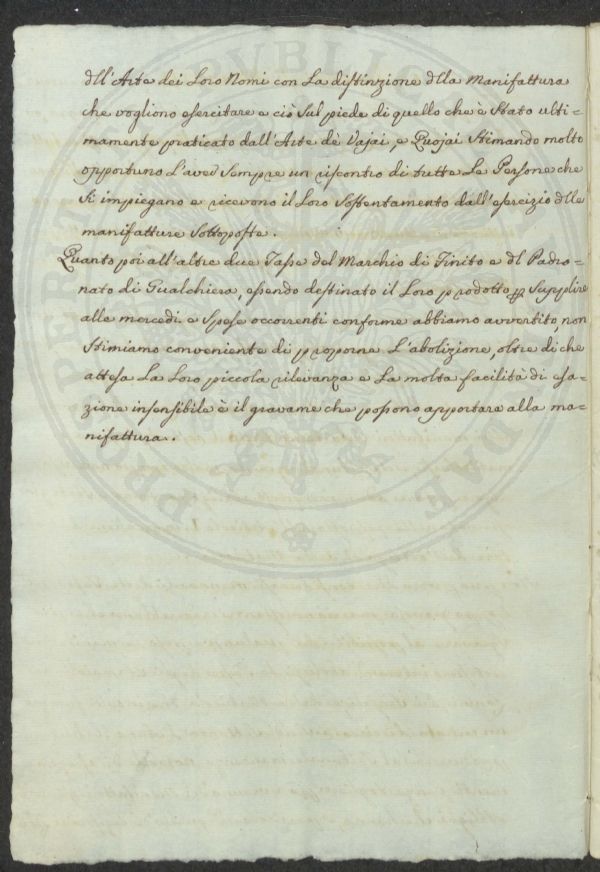 dll'Arte dei Loro Nomi con La distinzione dlla Manifattura
che vogliono esercitare e ciò sul piede di quello che è stato ulti=
mamente praticato dall'Arte dè Vajai, e Quojai stimando molto
opportuno L'aver sempre un riscontro di tutte Le Persone che
si impiegano e ricevono il Loro sostentamento dall'esercizio dlle
manifatture sottoposte.
Quanto poi all'altre due Tasse del Marchio di Finito e dl Padro=
nato di Gualchiera, essendo destinato il Loro prodotto p supplire
alle mercedi e spese occorrenti conforme abbiamo avvertito, non
stimiamo conveniente di proporne L'abolizione, oltre di che
attesa La Loro piccola rilevanza e La molta facilità di esa=
zione insensibile è il gravame che possono apportare alla ma=
nifattura.